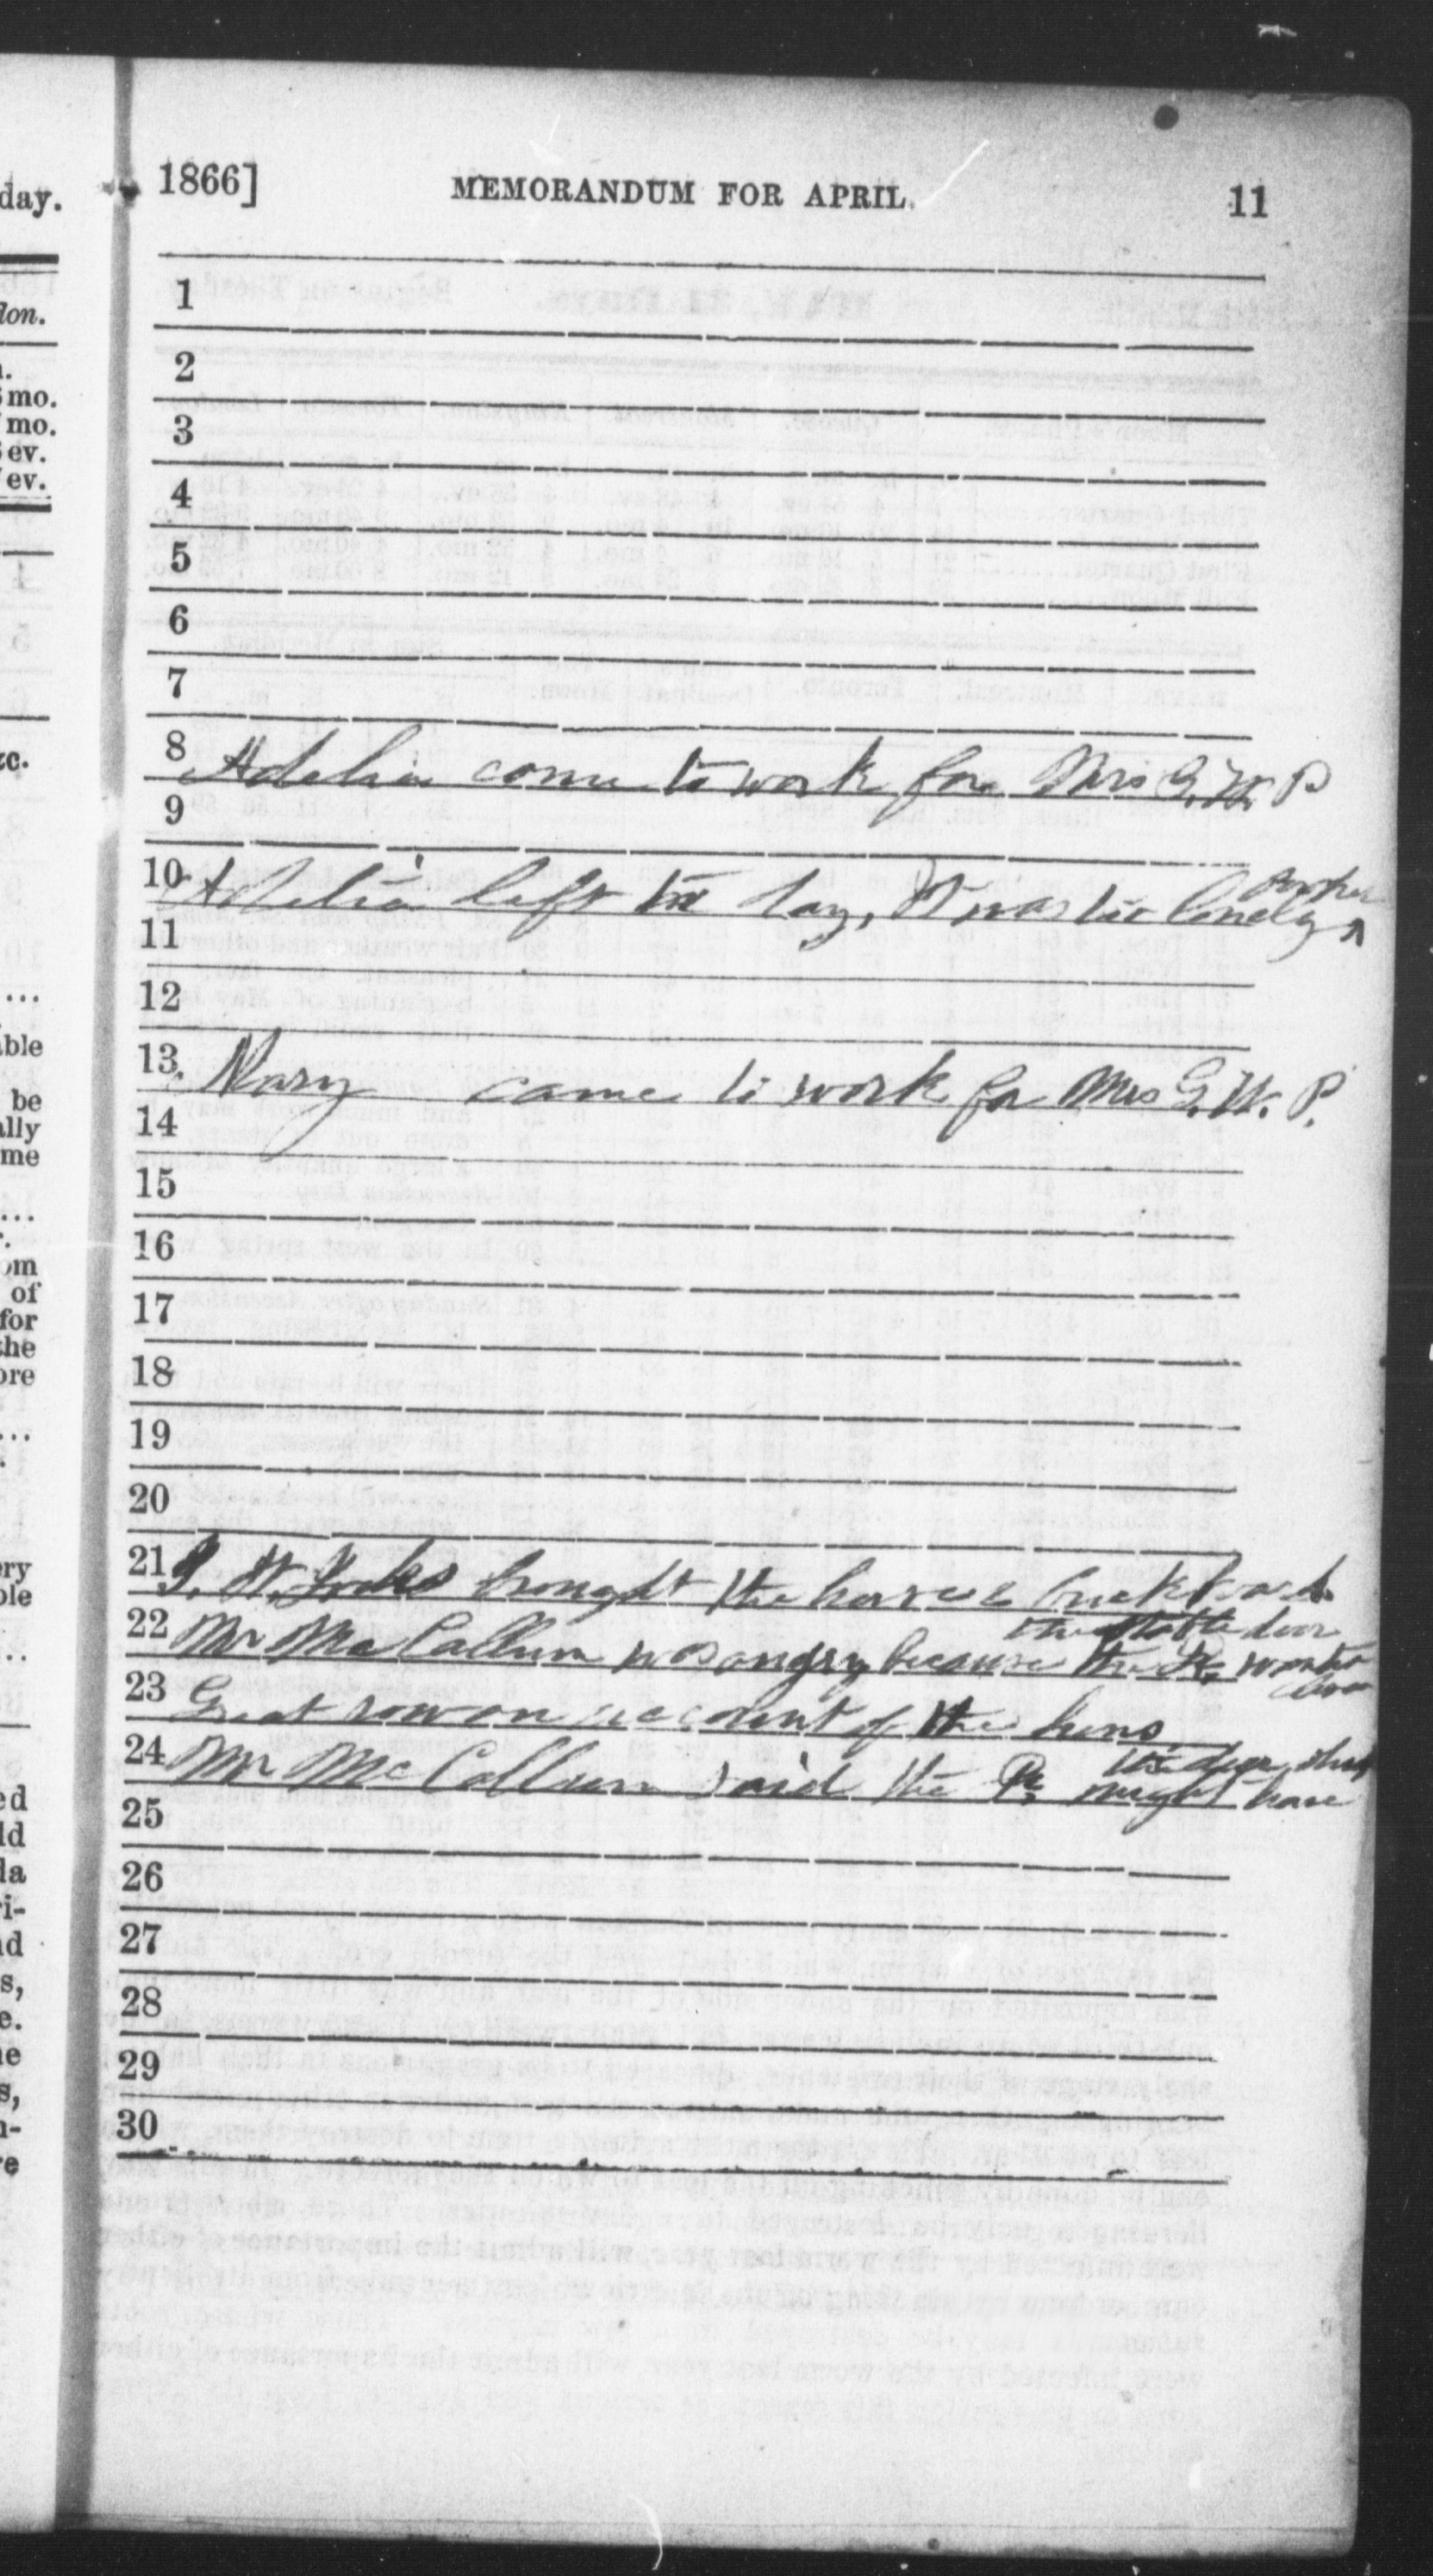 day.
don.
mo.
mo.
ev.
ev.
able
be
ally
me
om
of
for
the
ore
1866] MEMORANDUM FOR APRIL. 11
1
2
3
4
5
6
7
8 Adelia come to work for Mrs G. W. P
9
for her
10 Adelia left to day, It was too lonely ^
11
12
13. Mary came to work for Mrs G. W. P.
14
15
16
17
18
19
20
21 brought the horse & buckboard.
the stable door
22 Mr McCallum was angry because the
23 Great row on account of the hens
24 Mr McCallum said the P. might have
25
26
27
28
29
30